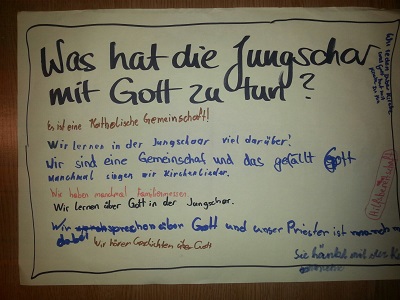 Was hat die Jungschar
mit Gott zu tun?
Es ist eine Katholische Gemeinschaft!
Wir lernen in der Jungschaar viel darüber!
Wir sind eine Gemeinschaf und das gefällt Gott
Manchmal singen wir Kirchenlieder.
Wir haben manchmal Familienmessen
Wir lernen über Gott in der Jungschar.
Wir sprechen über Gott und unser Priester ist manchmal
dabei
Wir hören Geschichten über Gott
Sie hänkt mit der
Wir reden über Kirche
und Gott